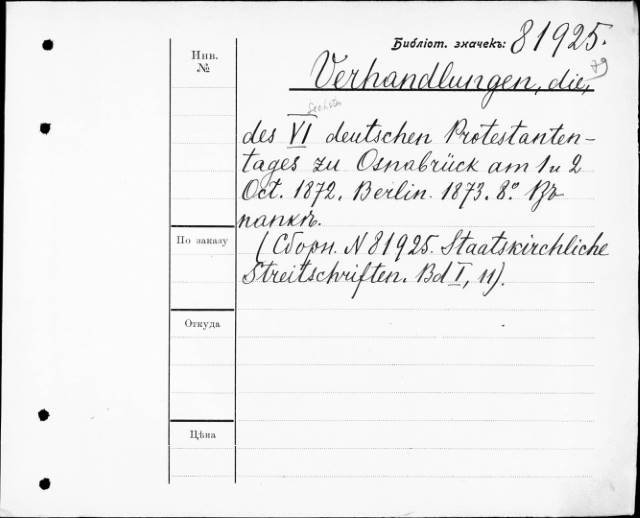 Библіот. значекъ: 81925.
79
Инв.
№
Verhandlungen, die,
Sechsten
des VI deutschen Protestanten-
tages zu Osnabrück am 1 u 2
Oct. 1872. Berlin. 1873. 8º. Въ
папкѣ.
По заказу
(Сборн. N 81925. Staatskirchliche
Streitschriften. Bd I, 11).
Откуда
Цѣна